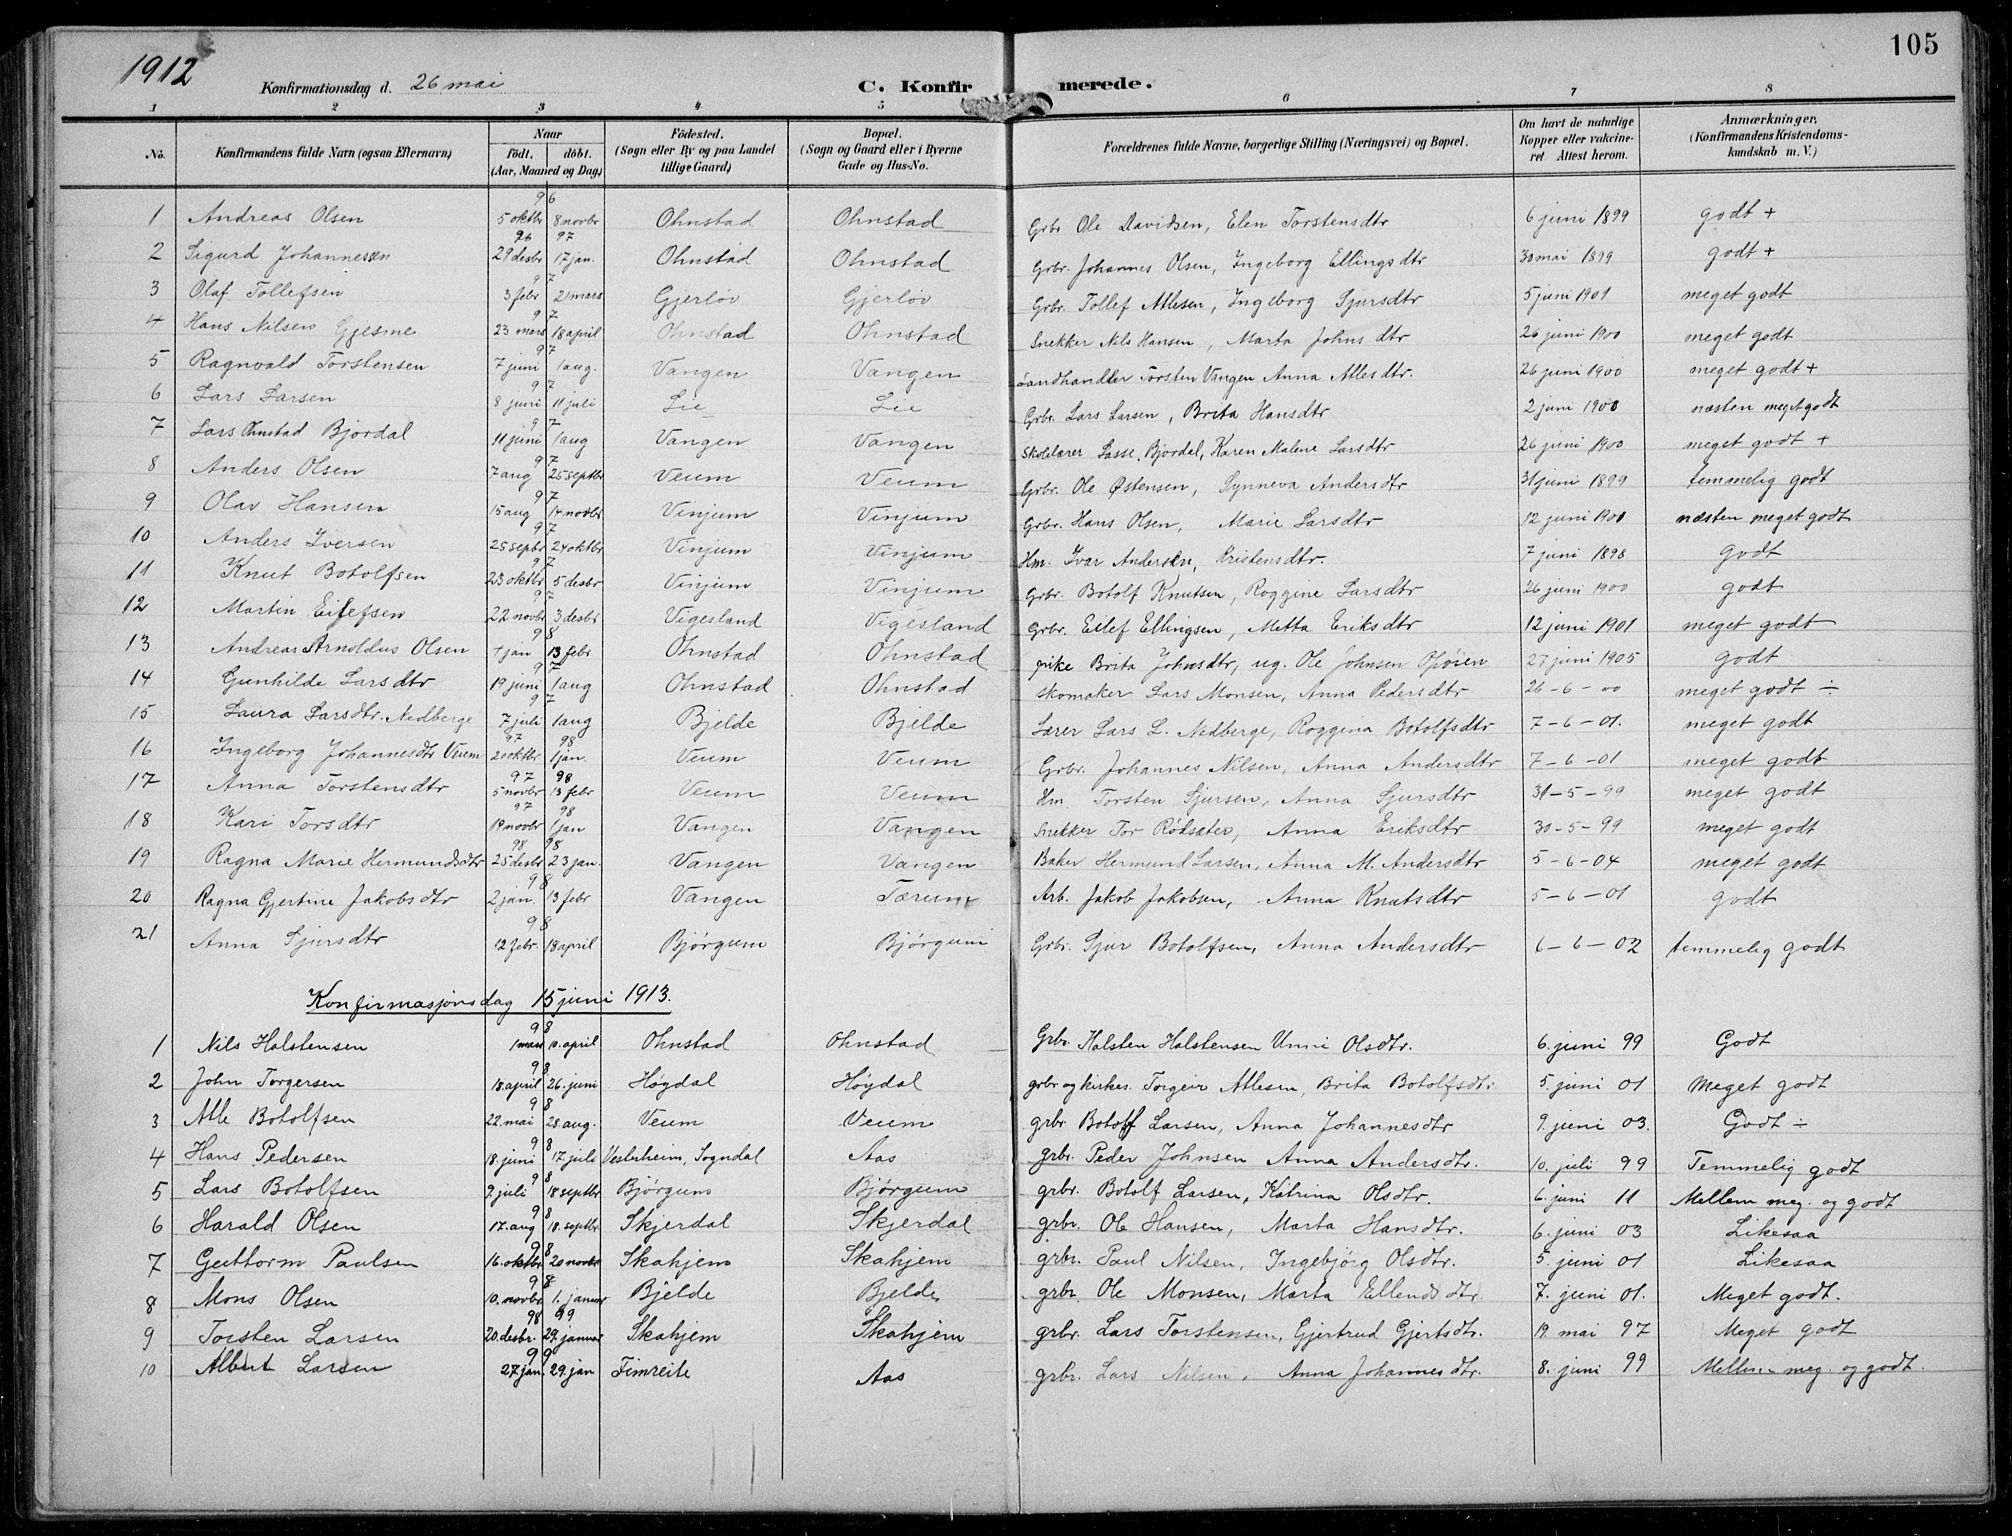 1912 105
Konfirmationsdag d. 26 mai C. Konfirmerede.
1 2 3 4 5 6 7 8
No. Konfirmandens fulde Navn (ogsaa Efternavn) Naar födt. döbt. (Aar, Maaned og Dag) Födested. (Sogn eller By og paa Landet tillige Gaard) Bopæl. (Sogn og Gaard eller i Byerne Gade og Hus-No. Forældrenes fulde Navne, borgerlige Stilling (Næringsvei) og Bopæl. Om havt de naturlige Kopper eller vakcineret Attest herom. Anmærkninger. (Konfirmandens Kristendomskundskab m. V.)
96
1 Andreas Olsen 5 oktbr 8 novbr Ohnstad Ohnstad Grbr Ole Davidsen, Elen Torstensdtr 6 juni 1899 godt +
96 97
2 Sigurd Johannessen 29 desbr 17 jan. Ohnstad Ohnstad Grbr. Johannes Olsen, Ingeborg Ellingsdtr 30 mai 1899 godt +
97
3 Olaf Tollefsen 3 febr 21 mars Gjerløv Gjerløv Grbr. Tollef Atlesen, Ingeborg Sjursdtr 5 juni 1901 meget godt
97
4 Hans Nilsen Gjesme 23 mars 18 april Ohnstad Ohnstad Snekker Nils Hansen, Marta Johnsdtr 26 juni 1900 meget godt
97
5 Ragnvald Torstensen 7 juni 1 aug. Vangen Vangen Landhandler Torsten Vangen Anna Atlesdtr. 26 juni 1900 meget godt +
97
6 Lars Larsen 8 juni 11 juli Lie Lie Grbr. Lars Larsen, Brita Hansdtr 2 juni 1900 næsten meget godt
97
7 Lars Ohnstad Bjordal 11 juni 1 aug Vangen Vangen Skolelærer Lasse Bjordal, Karen Malene Larsdtr 26 juni 1900 meget godt +
97
8 Anders Olsen 7 aug 25 septbr Veum Veum Grbr. Ole Østensen, Synneva Andersdtr 31 juni 1899 temmelig godt
97
9 Olav Hansen 15 aug 14 novbr Vinjum Vinjum Grbr. Hans Olsen, Marie Larsdtr 12 juni 1901 næsten meget godt
97
10 Anders Iversen 25 septbr 24 oktbr Vinjum Vinjum Hm. Ivar Andersen, Kristensdtr. 7 juni 1898 godt
97
11 Knut Botolfsen 23 oktbr 5 desbr Vinjum Vinjum Grbr. Botolf Knutsen, Roggine Larsdtr 26 juni 1900 godt
97
12 Martin Eilefsen 22 novbr 3 desbr Vigesland Vigesland Grbr. Eilef Ellingsen, Metta Eriksdtr 12 juni 1901 meget godt
98
13 Andreas Arnoldus Olsen 4 jan 13 febr Ohnstad Ohnstad pike Brita Johnsdtr, ug. Ole Johnsen 27 juni 1905 godt
97
14 Gunhilde Larsdtr 19 juni 1 aug Ohnstad Ohnstad skomaker Lars Monsen, Anna Pedersdtr 26-6-00 meget godt ÷
97
15 Laura Larsdtr. Nedberge 7 juli 1 aug Bjelde Bjelde Lærer Lars L. Nedberge, Roggina Botolfsdtr 7-6-01. meget godt
97 98
16 Ingeborg Johannesdtr Veum 20 oktbr 1 jan. Veum Veum Grbr. Johannes Nilsen, Anna Andersdtr 7-6-01 meget godt
97 98
17 Anna Torstensdtr 5 novbr 13 febr Veum Veum Hm. Torsten Sjursen, Anna Sjursdtr 31-5-99 meget godt
97 98
18 Kari Torsdtr 19 novbr 1 jan Vangen Vangen Snekker Tor Rødsæter, Anna Eriksdtr 30-5-99 meget godt
98 98
19 Ragna Marie Hermundsdtr 25 desbr 23 jan. Vangen Vangen Baker Hermund Larsen, Anna M. Andersdtr 5-6-04 meget godt
98
20 Ragna Gjertine Jakobsdtr 2 jan. 13 febr Vangen Tærum Arb. Jakob Jakobsen, Anna Knutsdtr 5-6-01 godt
98
21 Anna Sjursdtr 12 febr. 18 april Bjørgum Bjørgum Grbr. Sjur Botolfsen, Anna Andersdtr 6-6-02 temmelig godt
Konfirmasjonsdag 15 juni 1913.
98
1 Nils Halstensen 1 mars 10. april Ohnstad Ohnstad Grbr. Halsten Halstensen Unni Olsdtr. 6. juni 99 Godt
98
2 John Torgersen 18 april 26. juni Høydal Høydal grbr og kirkes. Torgeir Atlesen, Brita Botolfsdtr. 5. juni 01 Meget godt
98
3 Atle Botolfsen 22. mai 28. aug. Veum Veum grbr Botolf Larsen, Anna Johannesdtr 9. juni 03. Godt ÷
98
4 Hans Pedersen 18. juni 17. juli Vesterheim, Sogndal Aas grbr. Peder Johnsen Anna Andersdtr. 10. juli 99 Temmelig godt
98
5 Lars Botolfsen 9. juli 18 septbr Bjørgum Bjørgum grbr. Botolf Larsen, Katrina Olsdtr. 6. juni 11 Mellem meg. og godt
98
6 Harald Olsen 17. aug 18. septbr Skjerdal Skjerdal grbr. Ole Hansen, Marta Hansdtr. 6. juni 03 Likesaa
98
7 Guttorm Paulsen 16. oktbr. 20 novbr Skahjem Skahjem grbr. Paul Nilsen, Ingebjørg Olsdtr. 5. juni 01 Likesaa
98
8 Mons Olsen 10. novbr 1. januar Bjelde Bjelde grbr. Ole Monsen, Marta Ellendsdtr. 7. juni 01. Meget godt.
98 99
9 Torsten Larsen 20. desbr. 29. januar Skahjem Skahjem grbr. Lars Torstensen, Gjertrud Gjertsdtr. 19. mai 97 Meget godt
99
10 Albert Larsen 27. jan. 29. jan Fimreite Aas grbr. Lars Nilsen, Anna Johannesdtr. 8. juni 99 Mellem meg. og godt.